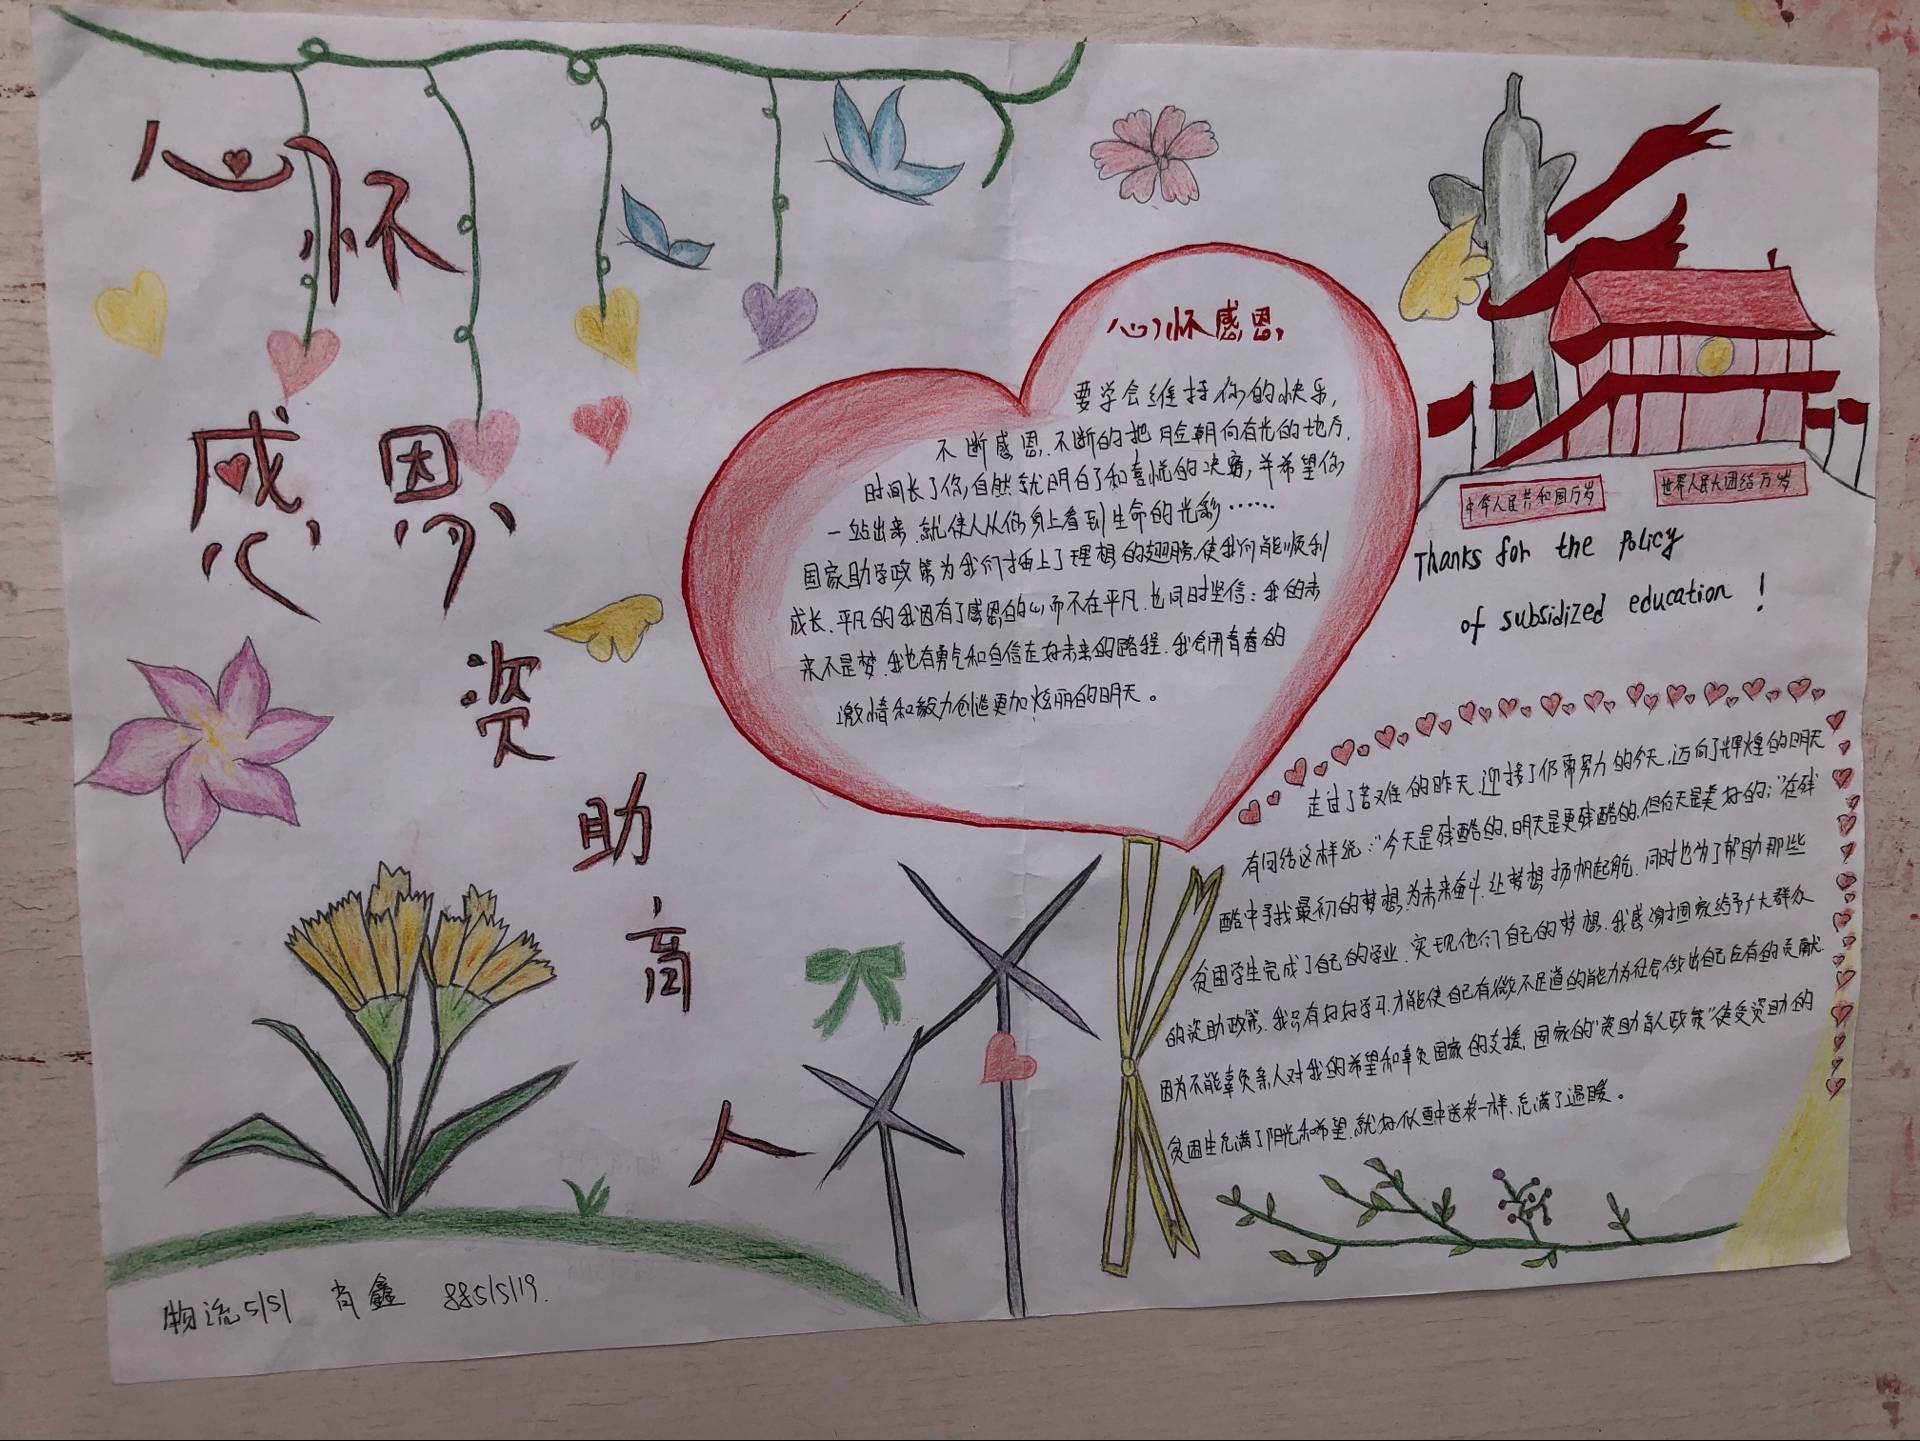 心怀
感恩
资
助
育
人
心怀感恩
要学会维持你的快乐,
不断感恩.不断的把脸朝向有光的地方.
时间长了你,自然就明白了和喜悦的决窍,并希望你
一站出来.就使人从你身上看到生命的光彩……
国家助学政策为我们插上了理想的翅膀.使我们能顺利
成长.平凡的我因有了感恩的心而不在平凡.也同时坚信:我的未
来不是梦.我也有勇气和自信走好未来的路程.我会用青春的
激情和毅力创造更加炫丽的明天。
中华人民共和国万岁
世界人民大团结万岁
Thanks for the Policy
of subsidized education!
走过了苦难的昨天.迎接了仍需努力的今天.迈向了辉煌的明天
有句话这样说:"今天是残酷的,明天是更残酷的,但后天是美好的;"在残
酷中寻找最初的梦想.为未来奋斗.让梦想扬帆起航.同时也为了帮助那些
贫困学生完成了自己的学业.实现他们自己的梦想.我感谢国家给予广大群众
的资助政策.我只有好好学习.才能使自己有微不足道的能力为社会做出自己应有的贡献.
因为不能辜负亲人对我的希望和辜负国家的支援.国家的"资助育人政策"使受资助的
贫困生充满了阳光和希望.就好似雪中送炭一样.充满了温暖。
物流5151 肖鑫 8851519.